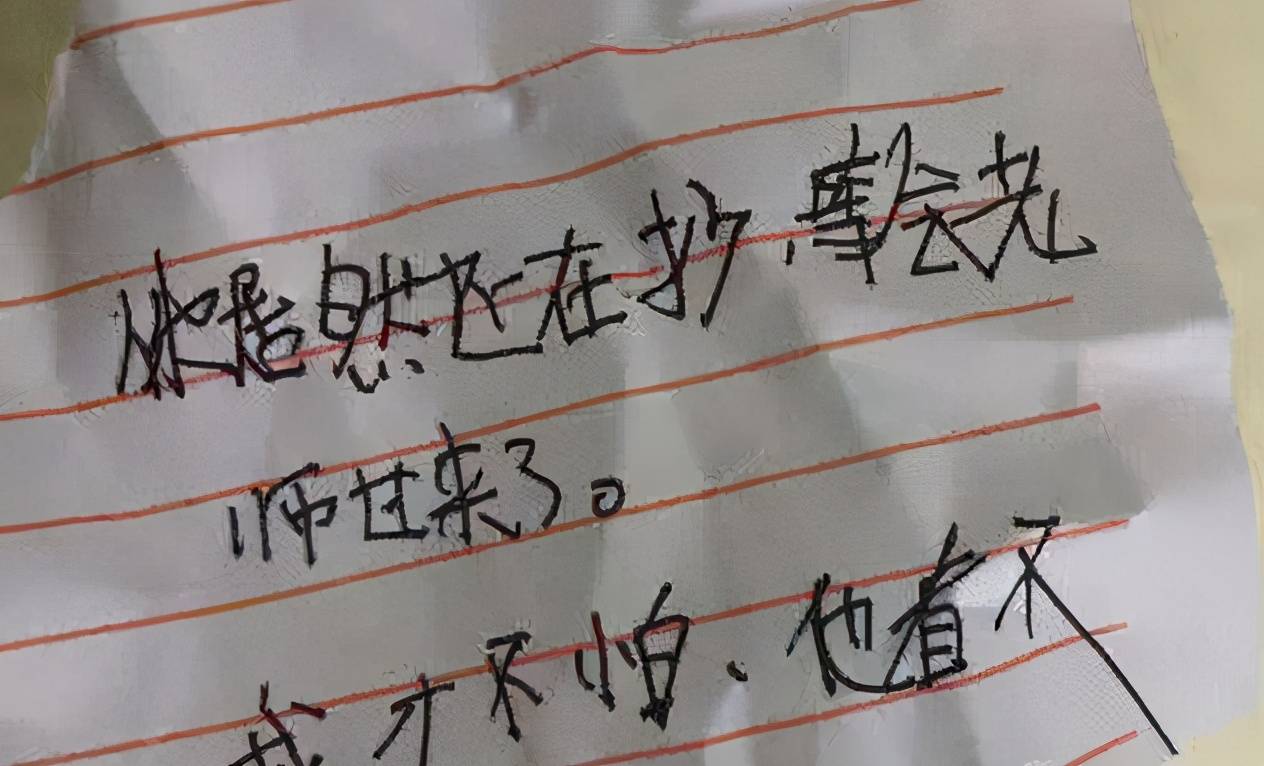 她居然还在抄,事会先
师过来了。
我才不怕、他看不